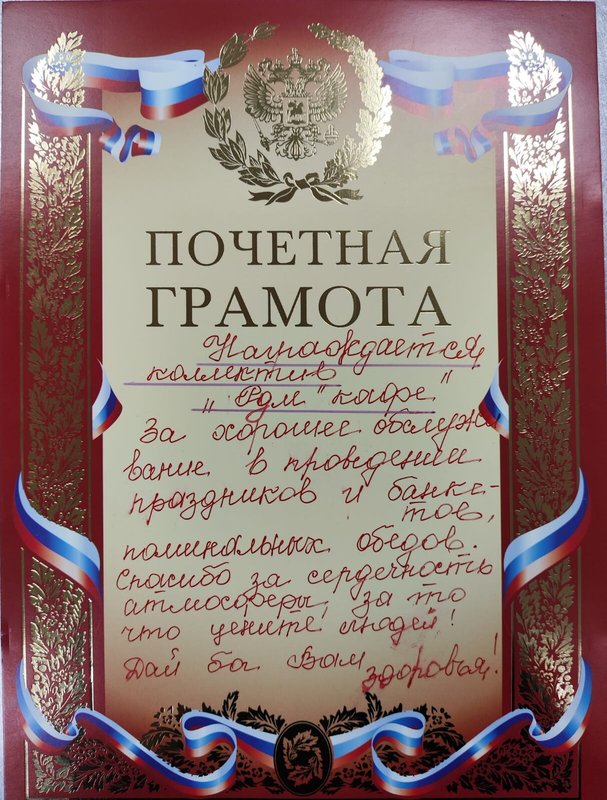 ПОЧЕТНАЯ
ГРАМОТА
Награждается
коллектив
" кафе"
За хорошее обслужи
вание в проведении
праздников и банке-
тов,
поминальных обедов.
Спасибо за сердечность
атмосферы, за то
что цените людей!
Дай ба Вам здоровья!